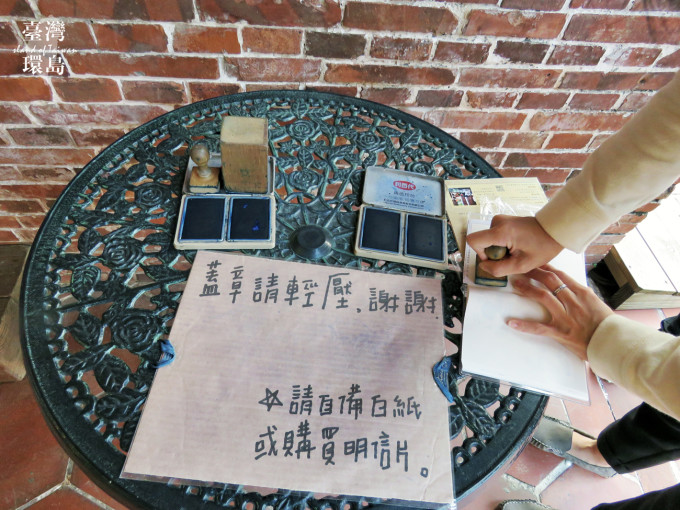 臺灣
Island of Taiwan
環島
蓋章請輕壓，謝謝！
☆請自備白紙
或購買明信片。